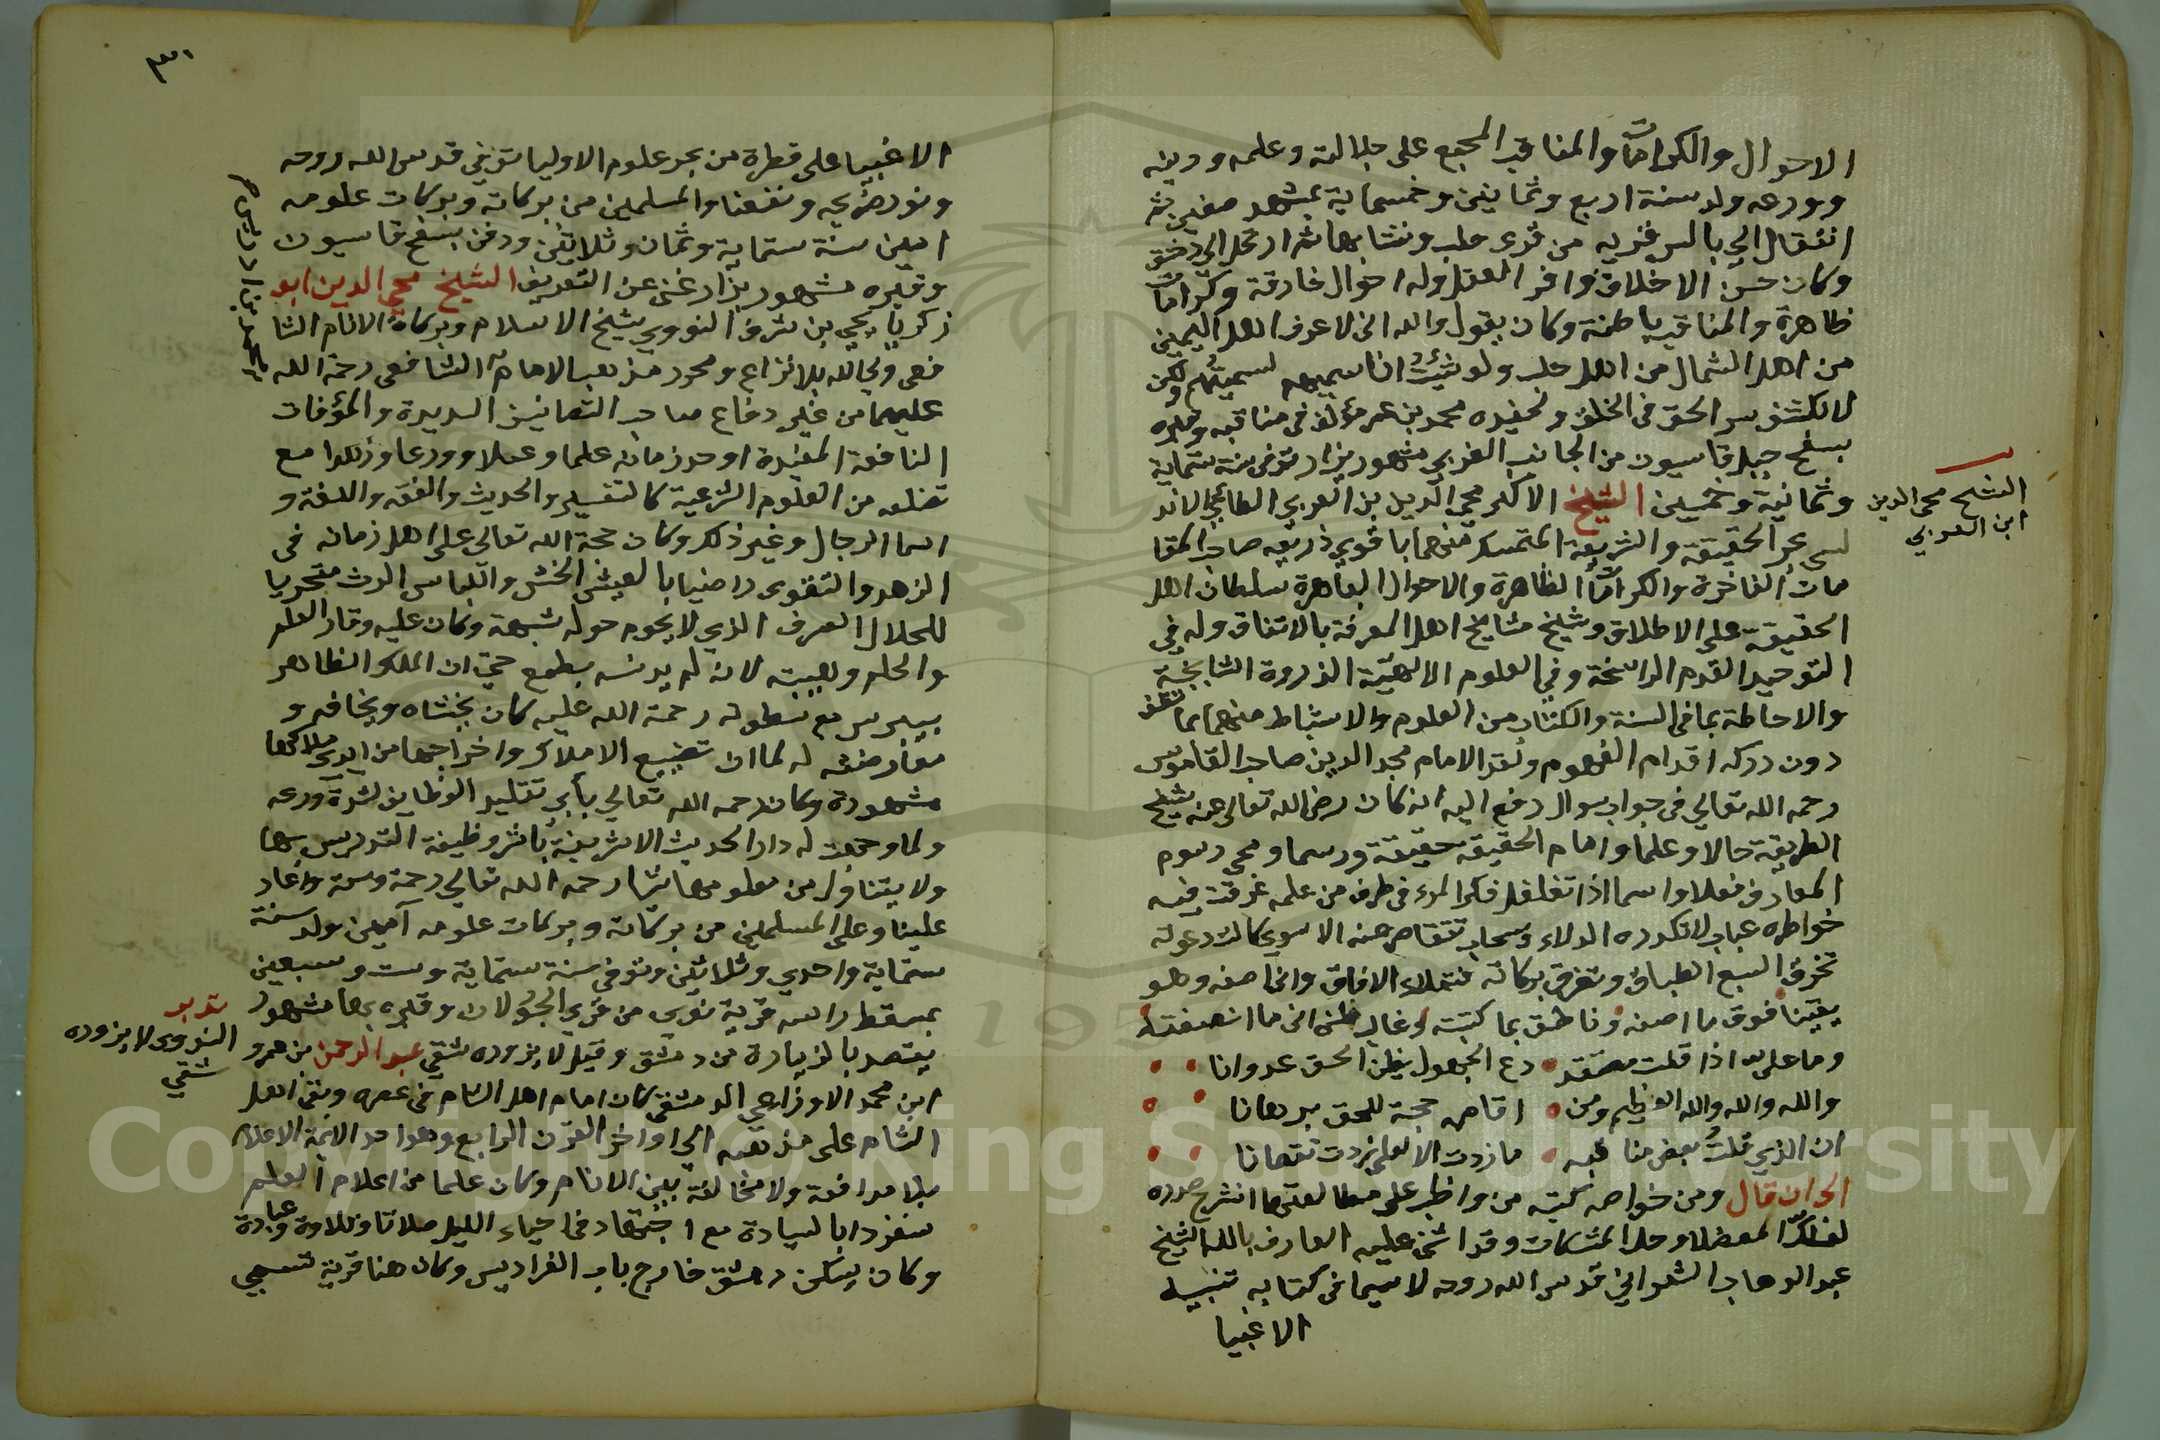 الاحوال والكرامات والمناقب المجمع على جلالته وعلمه ودينه
وورعه ولد سنة اربع وثمانين وخمسماية بمشهد صفين ثم
انتقال الى بالس قرية من قرى حلب ونشا بها ثم ارتحل الى دمشق
وكان حسن الاخلاق وافر العقل وله احوال خارقة وكرامات
ظاهرة والمناقب باطنة وكان يقول والله اني لاعرف اهل اليمين
من اهل الشمال من اهل حلب ولو شئت ان اسميهم لسميتهم ولكن
لا نكشف سر الحق في الخلق ولحفيده محمد بن عمر مؤلف في مناقبه وقبره
بسفح جبل قاسيون من الجانب الغربي مشهور يزار توفى سنة ستماية
وثمانية وخمسين الشيخ الاكبر محي الدين بن العربي الطائي الاند
لسي بحر الحقيقة والشريعة المتمسك منهما باقوى ذريعه صاحب المقا
مات الفاخرة والكرامات الظاهرة والاحوال الباهرة سلطان اهل
الحقيقة على الاطلاق وشيخ مشايخ اهل المعرفة بالاتفاق وله في
التوحيد القدم الراسخة وفي العلوم الالهية الذروة الشامخة
والاحاطة بما في السنة والكتاب من العلوم والاستنباط منهما بما تقف
دون دركه اقدام الفهوم ونقل الامام مجد الدين صاحب القاموس
رحمه الله تعالى في جواب سوال رفع اليه انه كان رضى الله تعالى عنه شيخ
الطريقة حالا وعلما وامام الحقيقة حقيقة ورسما ومحي رسوم
المعارف فعلا واسما اذا تغلغل فكر المرء في طرف من علمه غرقت فيه
خواطره عباب لا تكدره الدلاء وسحاب تتقاصر عنه الانوى كانت دعوته
تخرق السبع الطباق وتفرق بركاته فتملاء الافاق واني اصفه وهو
يقينا فوق ما اصفه وناطق بما كتبته وغالب ظنى انى ما انصفته
وما علي اذا قلت معتقد دع الجهول يظن الحق عدوانا
والله والله والله العظيم ومن اقامه حجة للحق برهانا
ان الذي قلت بعض من مناقبه ما زدت الا لعلى زدت نقصانا
الى ان قال ومن خواص كتبه من واظب على مطالعتها انشرح صدره
لفك المعضلا وحل المشكلات وقد اثنى عليه العارف بالله الشيخ
عبد الوهاب الشعراني قدس الله روحه لا سيما في كتابه تنبيه
الاغبيا
الشيخ محى الدين
ابن العربي
٣٠
الاغبيا على قطرة من بحر علوم الاوليا توفي قدس الله روحه
ونور ضريحه ونفعنا والمسلمين من بركاته وبركات علومه
امين سنة ستماية وثمان وثلاثين ودفن بسفح قاسيون
وقبره مشهور يزار غنى عن التعريف الشيخ محي الدين ابو
زكريا يحي بن شرف النووي شيخ الاسلام وبركة الانام الشا
فعى ولي الله بلا نزاع ومحرر مذهب الامام الشافعى رحمة الله
عليهما من غير دفاع صاحب التصانيف السديدة والمؤلفات
النافعة المفيدة اوحد زمانه علما وعملا وورعا وزهدا مع
تضلعه من العلوم الشرعية كالتفسير والحديث والفقه واللغة و
اسما الرجال وغير ذلك وكان حجة الله تعالى على اهل زمانه في
الزهد والتقوى راضيا بالعيش الخشن واللباس الرث متحريا
للحلال الصرف الذي لا يحوم حوله شبهة وكان عليه وقار العلم
والحلم وهيبته لانه لم يدنسه بطمع حتى ان الملك الظاهر
بيبرس مع سطوته رحمة الله عليه كان يخشاه ويخافه و
معارضته له لما اراد تضييع الاملاك واخراجها من ايدي ملاكها
مشهورة وكان رحمه الله تعالى يأبى تقليد الوظايف لشدة ورعه
ولما وجهت له دار الحديث الاشرفية باشر وظيفة التدريس بها
ولا يتناول من معلومها شيا رحمه الله تعالى رحمة وسعة واعاد
علينا وعلى المسلمين من بركاته وبركات علومه آمين ولد سنة
ستماية واحدي وثلاثين وتوفى سنة ستماية وست وسبعين
بمسقط راسه قرية نوى من قرى الجولان وقبره بها مشهور
يقصد بالزيارة من دمشق وقيل لا يزوره شقي عبد الرحمن بن عمرو
ابن محمد الاوزاعي الدمشقي كان امام اهل الشام في عصره وبقى اهل
الشام على مذهبه الى اواخر القرن الرابع وهو احد الائمة الاعلام
بلا مدافعة ولا مخالفة بين الانام وكان علما من اعلام العلم
منفردا بالسيادة مع اجتهاد في احياء الليل صلاتا وتلاوة وعبادة
وكان يسكن دمشق خارج باب الفراديس وكان هنا قرية تسمى
محمد بن ادريس
تدبر
النووى لا يزوره
شقي
Copyright © King Saud University
1957